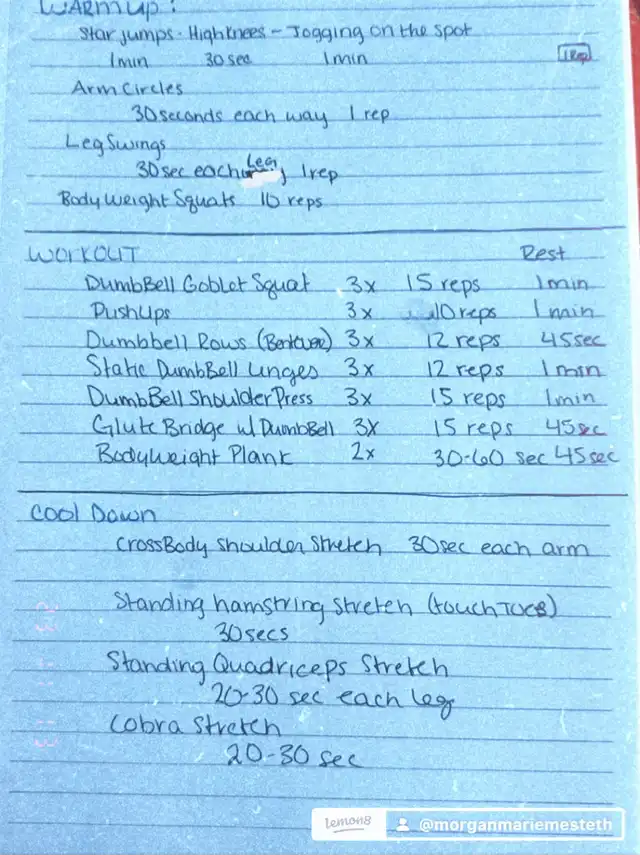 WARMUP:
Star jumps - High knees - Jogging on the spot
1min 30sec 1min 1 Rep
Arm Circles
30 seconds each way 1 rep
Leg Swings
30 sec each Leg 1 rep
Body weight Squats 10 reps
WORKOUT Rest
DumbBell Goblet Squat 3x 15 reps 1min
PushUps 3x 10 reps 1 min
Dumbbell Rows (Bentover) 3x 12 reps 45sec
Static DumbBell Lunges 3x 12 reps 1min
DumbBell Shoulder Press 3x 15 reps 1min
Glute Bridge w/ DumbBell 3x 15 reps 45sec
Bodyweight Plank 2x 30-60 sec 45sec
Cool Down
CrossBody Shoulder Stretch 30sec each arm
Standing hamstring stretch (touch TOES)
30secs
Standing Quadriceps Stretch
20-30 sec each leg
Cobra Stretch
20-30 sec
lemon8 @morganmariemesteth